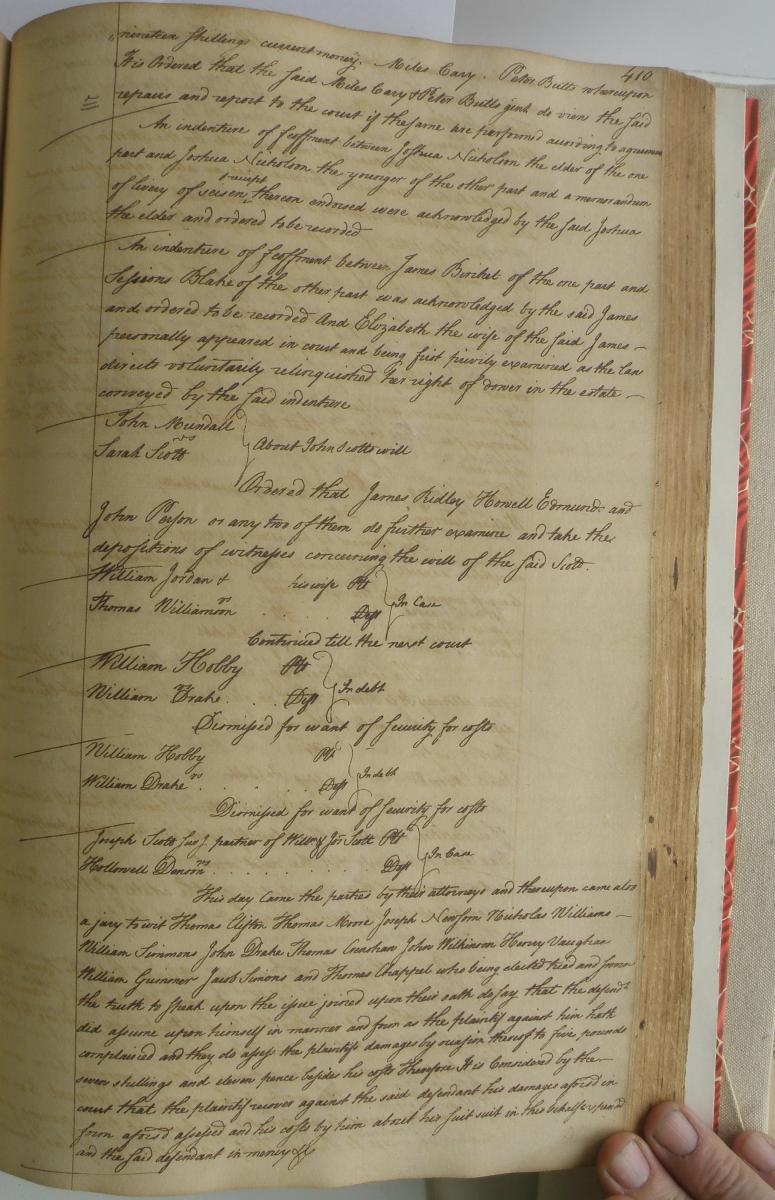 410
nineteen shillings current money. Miles Cary. Peter Butts whereupon
It is Ordered that the said Miles Cary & Peter Butts gent do view the said
repairs and report to the court if the same are performed according to agreement
An indenture of feoffment between Joshua Nicholson the elder of the one
part and Joshua Nicholson the younger of the other part and a memorandum
of livery of seisen & receipt thereon endorsed were acknowledged by the said Joshua
the elder and ordered to be recorded
An indenture of feoffment between James Bricket of the one part and
Sessions Blake of the other part was acknowledged by the said James
and ordered to be recorded And Elizabeth the wife of the said James
personally appeared in court and being first privily examined as the law
directs voluntarily relinquished her right of dower in the estate
conveyed by the said indenture
John Mundall
vs
Sarah Scott
About John Scotts will
Ordered that James Ridley Howell Edmunds and
John Person or any two of them do further examine and take the
depositions of witnesses concerning the will of the said Scott.
William Jordan & his wife Plt
vs In Case
Thomas Williamson . . . Deft
Continued till the next court
William Hobby Plt
vs In debt
William Drake . . . Deft
Dismissed for want of security for costs
William Hobby Plt
vs In debt
William Drake . . . . . Deft
Dismissed for want of security for costs
Joseph Scott partner of Willm & Jos Scott Plt
vs In Case
Hollowell Denson . . . . . . . . Deft
This day came the parties by their attorneys and thereupon came also
a jury to wit Thomas Clifton Thomas Moore Joseph Newsom Nicholas Williams
William Simmons John Drake Thomas Crenshaw John Wilkinson Henry Vaughan
William Grimmer Jacob Simons and Thomas Chappel who being elected tried and sworn
the truth to speak upon the issue joined upon their oath do say that the defendt
did assume upon himself in manner and form as the plaintif against him hath
complained and they do assess the plaintifs damages by occasion thereof to five pounds
seven shillings and eleven pence besides his costs Therefore It is Considered by the
court that the plaintif recover against the said defendant his damages aforesd in
form aforesd assessed and his costs by him about his suit in this behalf expended
and the said defendant in mercy &c